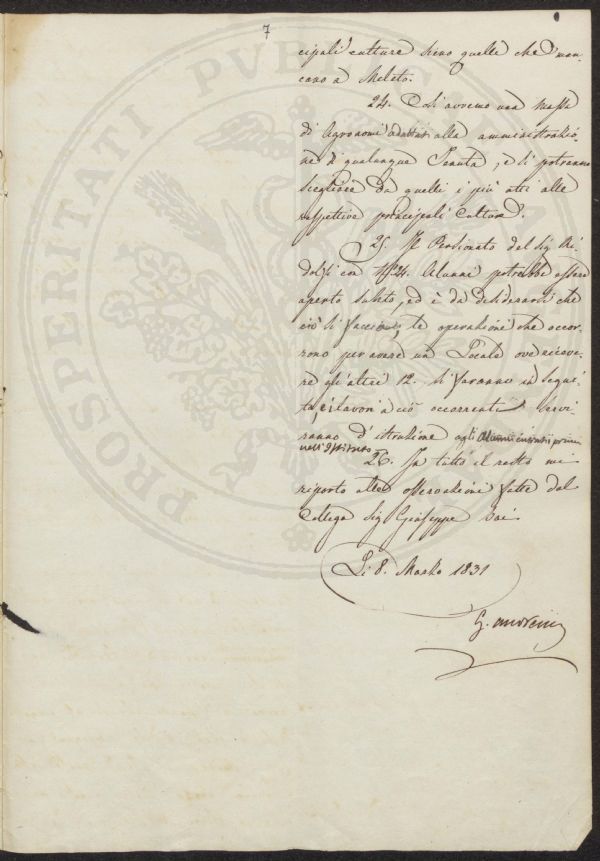 7
cipali culture sieno quelle che man-
cano a Meleto.
24. Così avremo una masse
di Agronomi adattati alla amministrazio-
ne di qualunque Tenuta, e si potranno
scegliere da quelli i più atti alle
rispettive principali Culture.
25. Il Pensionato del Sig. Ri-
dolfi con Alunni potrebbe essere
aperto subito, ed è da desiderarsi che
ciò si faccia, le operazioni che occor-
rono per avere un Locale ove ricove-
re gli altri 12. si faranno in segui-
to, e i lavori a ciò occorrenti servi-
ranno d'istruzione agli Alunni
nell'Istituto
26. In tutto il resto mi
riporto alle osservazioni fatte dal
Collega Sig. Giuseppe
Li 8. Marzo 1831
G.
PROSPERITATI PUBLICAE